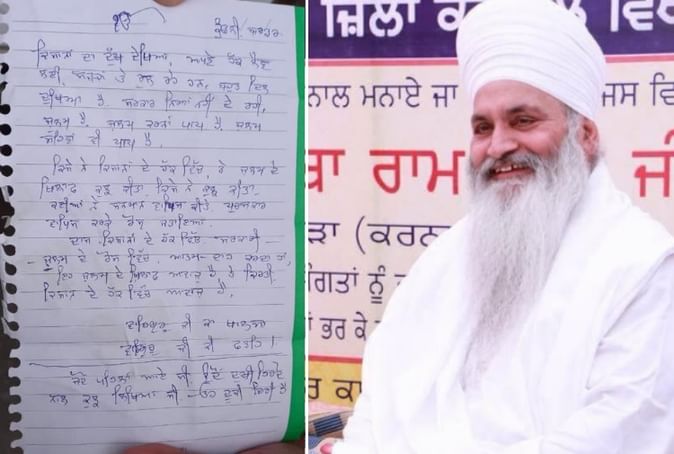 ੴ
ਕੁੰਡਲੀ ਬਾਰਡਰ
ਕਿਸਾਨਾਂ ਦਾ ਦੁੱਖ ਦੇਖਿਆ, ਆਪਣੇ ਹੱਕ ਲੈਣ
ਲਈ, ਸੜਕਾਂ ਤੇ ਰੁਲ ਰਹੇ ਹਨ, ਬਹੁਤ ਦਿਲ
ਦੁਖਿਆ ਹੈ. ਸਰਕਾਰ ਨਿਆਂ ਨਹੀਂ ਦੇ ਰਹੀ,
ਜੁਲਮ ਹੈ. ਜੁਲਮ ਕਰਨਾ ਪਾਪ ਹੈ. ਜੁਲਮ
ਸਹਿਣਾ ਵੀ ਪਾਪ ਹੈ.
ਕਿਸੇ ਨੇ ਕਿਸਾਨਾਂ ਦੇ ਹੱਕ ਵਿੱਚ, ਤੇ ਜੁਲਮ ਦੇ
ਖਿਲਾਫ ਕੁਝ ਕੀਤਾ ਕਿਸੇ ਨੇ ਕੁਝ ਕੀਤਾ.
ਕਈਆਂ ਨੇ ਸਨਮਾਨ ਵਾਪਿਸ ਕੀਤੇ, ਪੁਰਸਕਾਰ
ਵਾਪਿਸ ਕਰਕੇ ਰੋਸ ਜਤਾਇਆ.
ਦਾਸ ਕਿਸਾਨਾਂ ਦੇ ਹੱਕ ਵਿੱਚ, ਸਰਕਾਰੀ -
- ਜੁਲਮ ਦੇ ਰੋਸ ਵਿੱਚ, ਆਤਮ-ਦਾਹ ਕਰਦਾ ਹਾਂ,
ਇਹ ਜੁਲਮ ਦੇ ਖਿਲਾਫ ਆਵਾਜ਼ ਹੈ ਤੇ ਕਿਰਤੀ
ਕਿਸਾਨ ਦੇ ਹੱਕ ਵਿੱਚ ਆਵਾਜ਼ ਹੈ.
ਵਾਹਿਗੁਰੂ ਜੀ ਕਾ ਖਾਲਸਾ
ਵਾਹਿਗੁਰੂ ਜੀ ਕੀ ਫਤਹਿ।
ਪਹਿਲਾਂ ਆਏ ਸੀ,
ਨਾਲ ਕੁਝ ਲਿਖਿਆ ਸੀ -
ਜ਼ਿਲਾ ਕ
ਨਾਲ ਮਨਾਏ ਜਾ
ਜਸ ਵਿ
ਬਾ ਰਾਮ
ਜੀ
ੜਾ (ਕਰਨਾ
ਸੰਗਤਾਂ ਨੂੰ
ਾਂ ਭਰ ਕੇ
ਰ ਕਾ